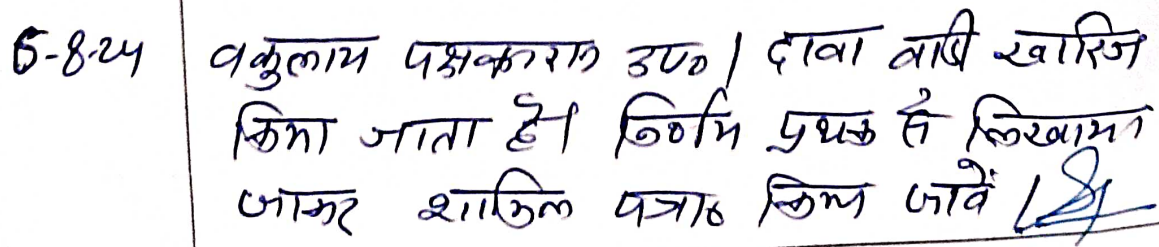 5-8-24 वकुलाय पक्षकारान उप० । दावा वादी खारिज
किया जाता है। निर्णय पृथक से लिखाया
जाकर शामिल पत्रा० किया जावें ।